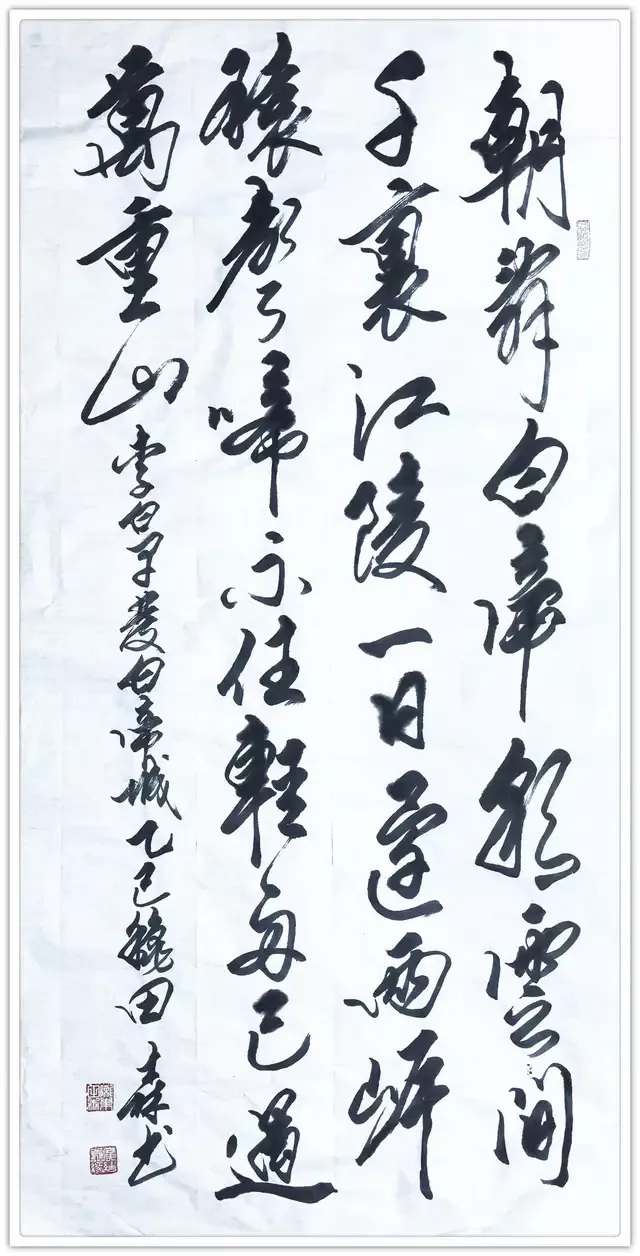 朝辭白帝彩雲間
千裏江陵一日還兩岸
猿聲啼不住輕舟已過
萬重山 李白早發白帝城 乙巳秋 田森书